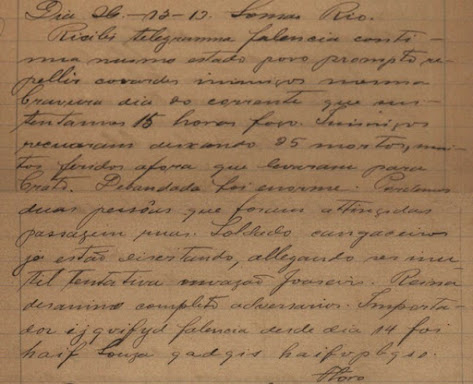 Dia 26-13-13. Lomas Rio.
Recibi telegramma falencia conti-
nua mesmo estado povo prompto re-
pellir covardes inimigos mesma
bravura dia do corrente que sus-
tentamos 15 horas fogo. Inimigos
recuaram deixando 35 mortos, mui-
tos feridos afora que levaram para
Crato. Debandada foi enorme. Perdemos
duas pessôas que foram attingidas
passagem ruas. Soldado cangaceiro
já estão disertando, allegando ser inu-
til tentativa invasão Joaseiro. Reina
desanimo completo adversarios. Importa-
dor falencia desde dia 14 foi
haif Souza gadgis
Floro